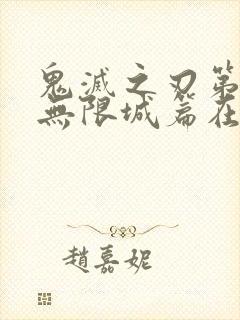 鬼滅之刃第
無限城篇在
趙嘉妮